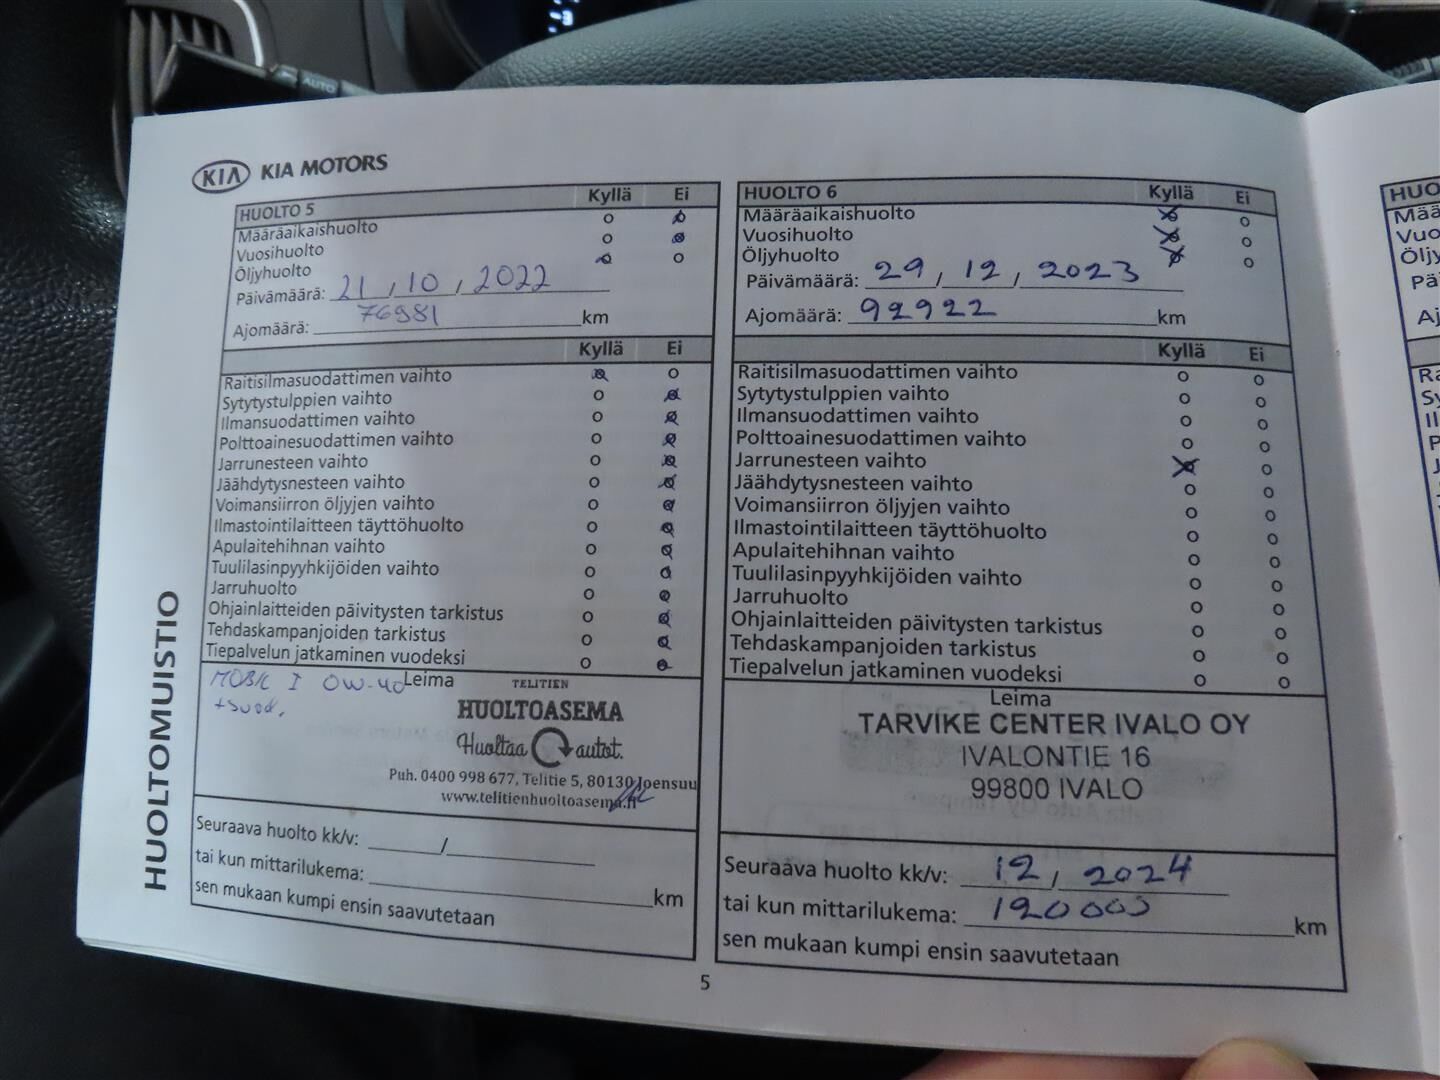 AUTO
KIA KIA MOTORS
HUOLTOMUISTIO
HUOLTO 5 Kyllä Ei
Määräaikaishuolto o o
Vuosihuolto o o
Öljyhuolto o o
Päivämäärä: 21, 10, 2022
Ajomäärä: 76981 km
Kyllä Ei
Raitisilmasuodattimen vaihto o o
Sytytystulppien vaihto o o
Ilmansuodattimen vaihto o o
Polttoainesuodattimen vaihto o o
Jarrunesteen vaihto o o
Jäähdytysnesteen vaihto o o
Voimansiirron öljyjen vaihto o o
Ilmastointilaitteen täyttöhuolto o o
Apulaitehihnan vaihto o o
Tuulilasinpyyhkijöiden vaihto o o
Jarruhuolto o o
Ohjainlaitteiden päivitysten tarkistus o o
Tehdaskampanjoiden tarkistus o o
Tiepalvelun jatkaminen vuodeksi o o
MOBIL 1 0W-40 Leima
+suod.
TELITIEN
HUOLTOASEMA
Huoltaa autot.
Puh. 0400 998 677, Telitie 5, 80130 Joensuu
www.telitienhuoltoasema.fi
Seuraava huolto kk/v: /
tai kun mittarilukema: km
sen mukaan kumpi ensin saavutetaan
HUOLTO 6 Kyllä Ei
Määräaikaishuolto o o
Vuosihuolto o o
Öljyhuolto o o
Päivämäärä: 29, 12, 2023
Ajomäärä: 92922 km
Kyllä Ei
Raitisilmasuodattimen vaihto o o
Sytytystulppien vaihto o o
Ilmansuodattimen vaihto o o
Polttoainesuodattimen vaihto o o
Jarrunesteen vaihto o o
Jäähdytysnesteen vaihto o o
Voimansiirron öljyjen vaihto o o
Ilmastointilaitteen täyttöhuolto o o
Apulaitehihnan vaihto o o
Tuulilasinpyyhkijöiden vaihto o o
Jarruhuolto o o
Ohjainlaitteiden päivitysten tarkistus o o
Tehdaskampanjoiden tarkistus o o
Tiepalvelun jatkaminen vuodeksi o o
Leima
TARVIKE CENTER IVALO OY
IVALONTIE 16
99800 IVALO
Seuraava huolto kk/v: 12, 2024
tai kun mittarilukema: 120000 km
sen mukaan kumpi ensin saavutetaan
5